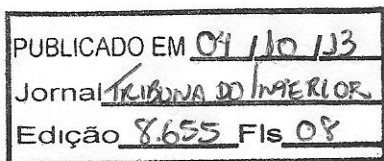 PUBLICADO EM 04/10/13
Jornal TRIBUNA DO INTERIOR
Edição 8.655 Fls 08